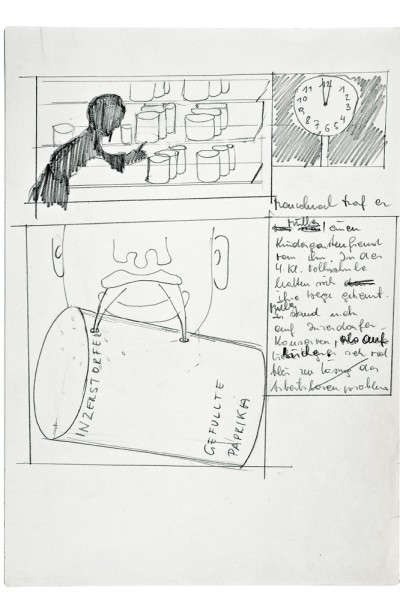 12
11 1
10 2
9 3
8 4
7 6 5
manchmal traf er
Müller einen
Kindergartenfreund
von ihm. In der
4. Kl. Volksschule
hatten sich
ihre Wege getrennt.
Müller stand noch
auf Inzersdorfer-
Konserven, also auf
sich
zur Lösung des
Arbeitslosenproblems
INZERSTORFER
GEFÜLLTE
PAPRIKA